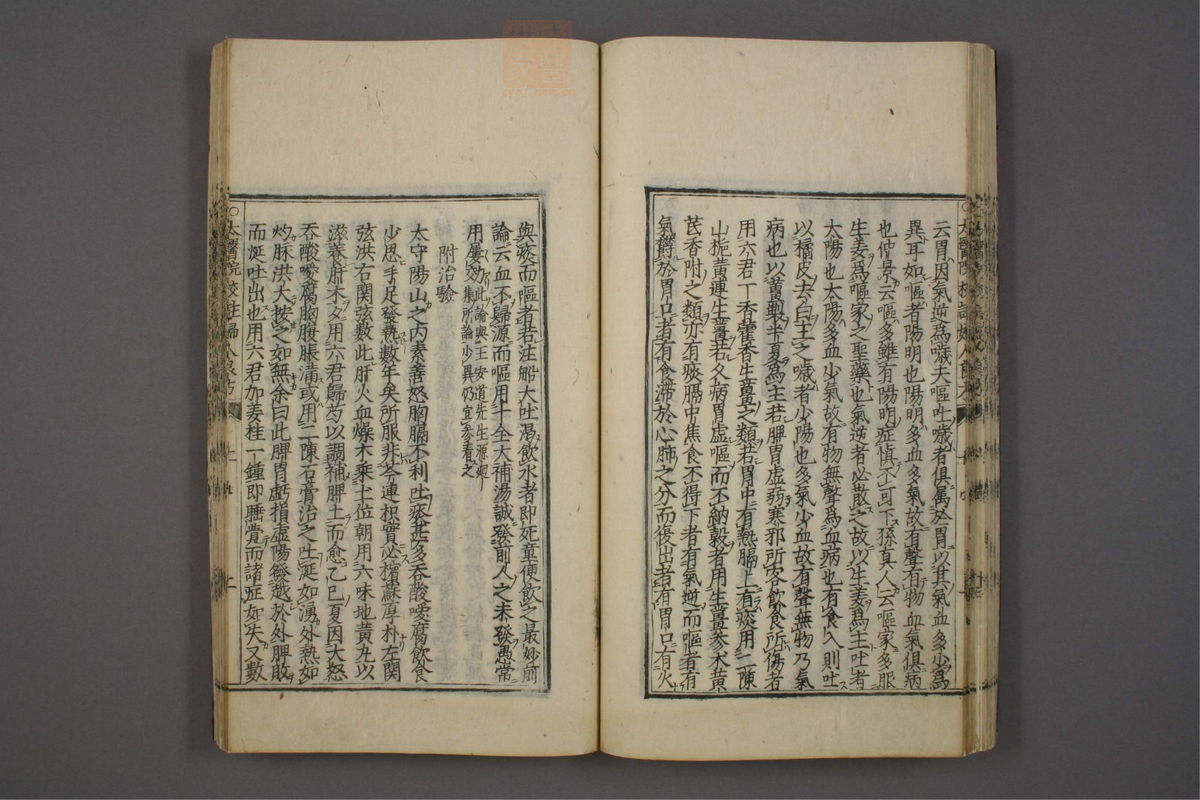 云胃因氣逆爲噦夫嘔吐噦者俱属於胃以其氣血多少爲
異耳如嘔者陽明也陽明多血多氣故有聲有物血氣俱病
也仲景云嘔多雖有陽明症慎不可下孫真人云嘔家多服
生姜爲嘔家之聖藥也氣逆者必散之故以生姜爲主吐者
太陽也太陽多血少氣故有物無聲爲血病也有食入則吐
以橘皮去白主之噦者少陽也多氣少血故有聲無物乃氣
病也以薑製半夏爲主若脾胃虚弱寒邪所客飲食所傷者
用六君丁香藿香生薑之類若胃中有熱膈上有痰用二陳
山梔黄連生薑若久病胃虚嘔而不納穀者用生薑参术黄
茋香附之類亦有痰膈中焦食不得下者有氣逆而嘔者有
氣欝於胃口者有食滞於心肺之分而復出者有胃口有火
與痰而嘔者若注船大吐渇飲水者即死童便飲之最妙前
論云血不歸源而嘔用十全大補湯誠發前人之未發愚常
用屢効此論與王安道先生源症
集所論少異仍宜参看之
附治驗
太守陽山之内素善怒胸膈不利吐痰甚多呑酸噯腐飲食
少思手足發熱數年矣所服非芩連枳實必檳蘇厚朴左関
弦洪右関弦數此肝火血燥木乘土位朝用六味地黄丸以
滋養肝木夕用六君歸芍以調補脾土而愈乙巳夏因大怒
呑酸噯腐胸腹脹満或用二陳石膏治之吐涎如湧外熱如
灼脉洪大按之如無余曰此脾胃虧損虚陽發越於外脾敗
而涎吐出也用六君加姜桂一鍾即睡覺而諸症如失又數
○太醫院校註婦人良方